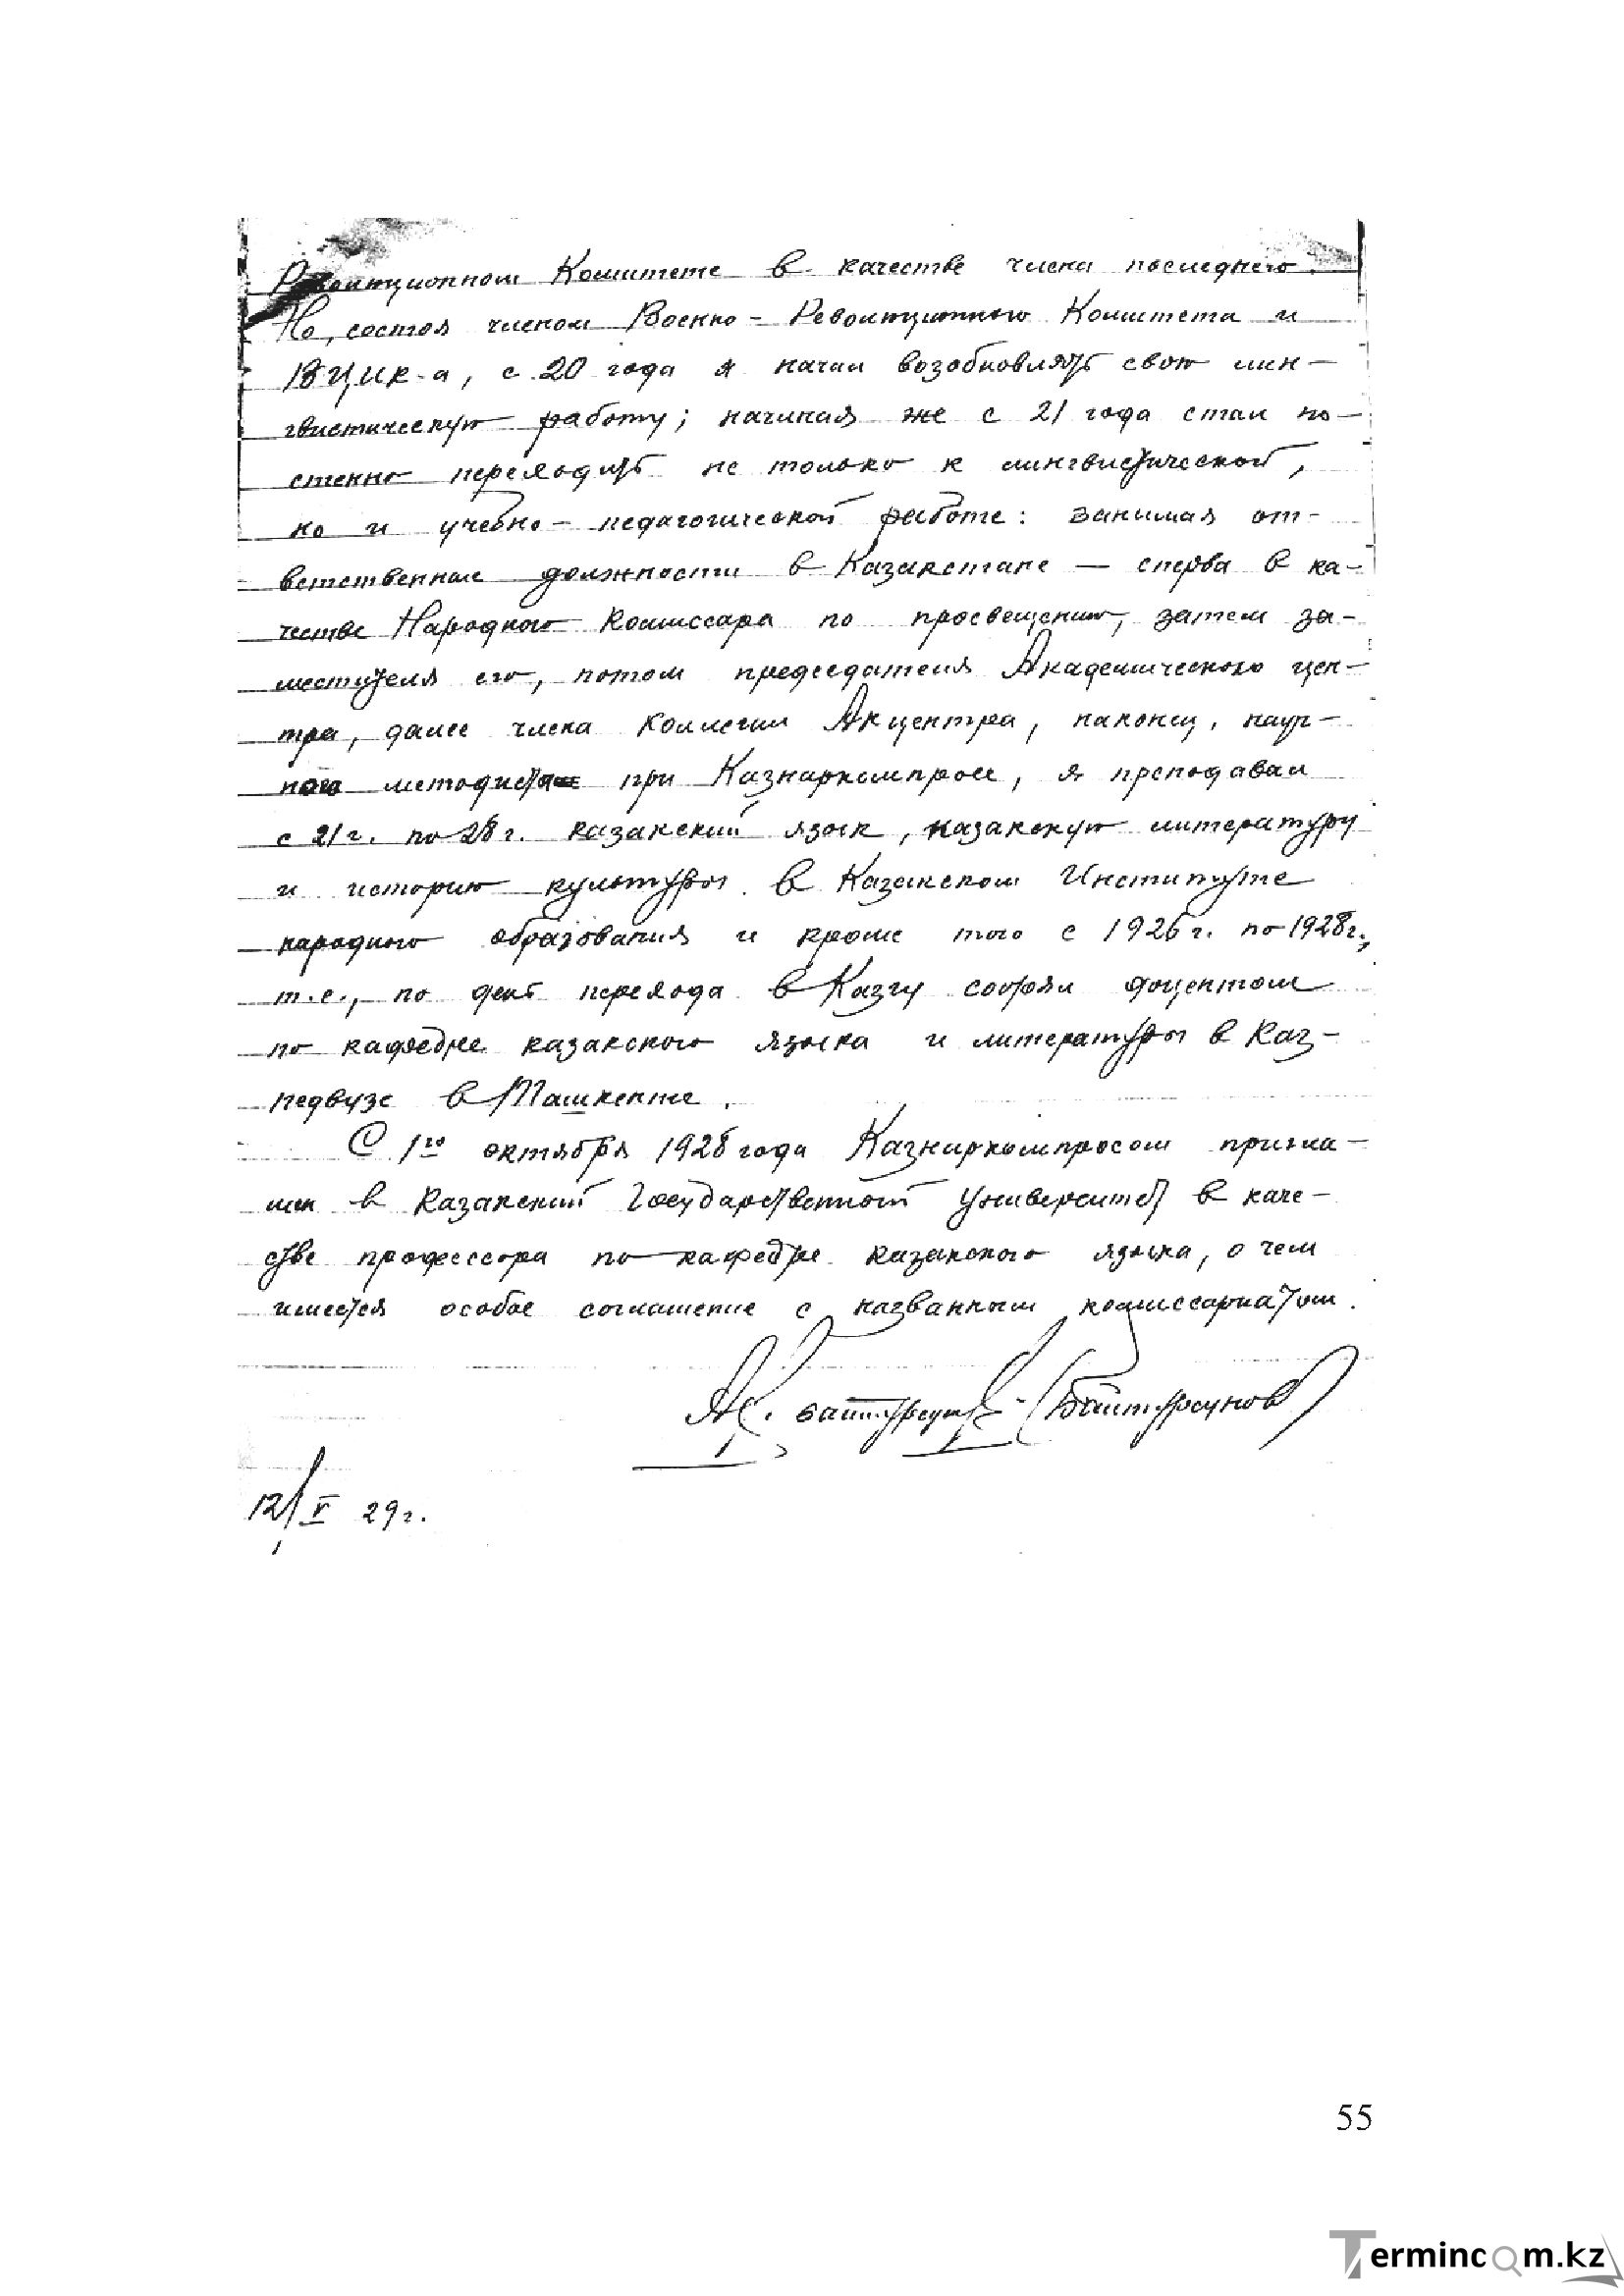 Революционном Комитете в качестве члена последнего.
Но, состоя членом Военно-Революционного Комитета и
ВЦИК-а, с 20 года я начал возобновлять свою лин-
гвистическую работу; начиная же с 21 года стал по-
степенно переходить не только к лингвистической,
но и учебно-педагогической работе: занимая от-
ветственные должности в Казакстане — сперва в ка-
честве Народного Комиссара по просвещению, затем за-
местителя его, потом председателя Академического цен-
тра, далее члена Коллегии Акцентра, наконец, науч-
ного методиста при Казнаркомпросе, я преподавал
с 21 г. по 28 г. казакский язык, казакскую литературу
и историю культуры в Казакском Институте
народного образования и кроме того с 1926 г. по 1928 г.,
т.е., по день перехода в Казгу состоял доцентом
по кафедре казакского языка и литературы в Каз-
педвузе в Ташкенте.
С 1го октября 1928 года Казнаркомпросом пригла-
шен в Казакский Государственный Университет в каче-
стве профессора по кафедре казакского языка, о чем
имеется особое соглашение с названным комиссариатом.
А. Байтурсунов (Байтурсунов)
12/V 29 г.
55
Termincom.kz